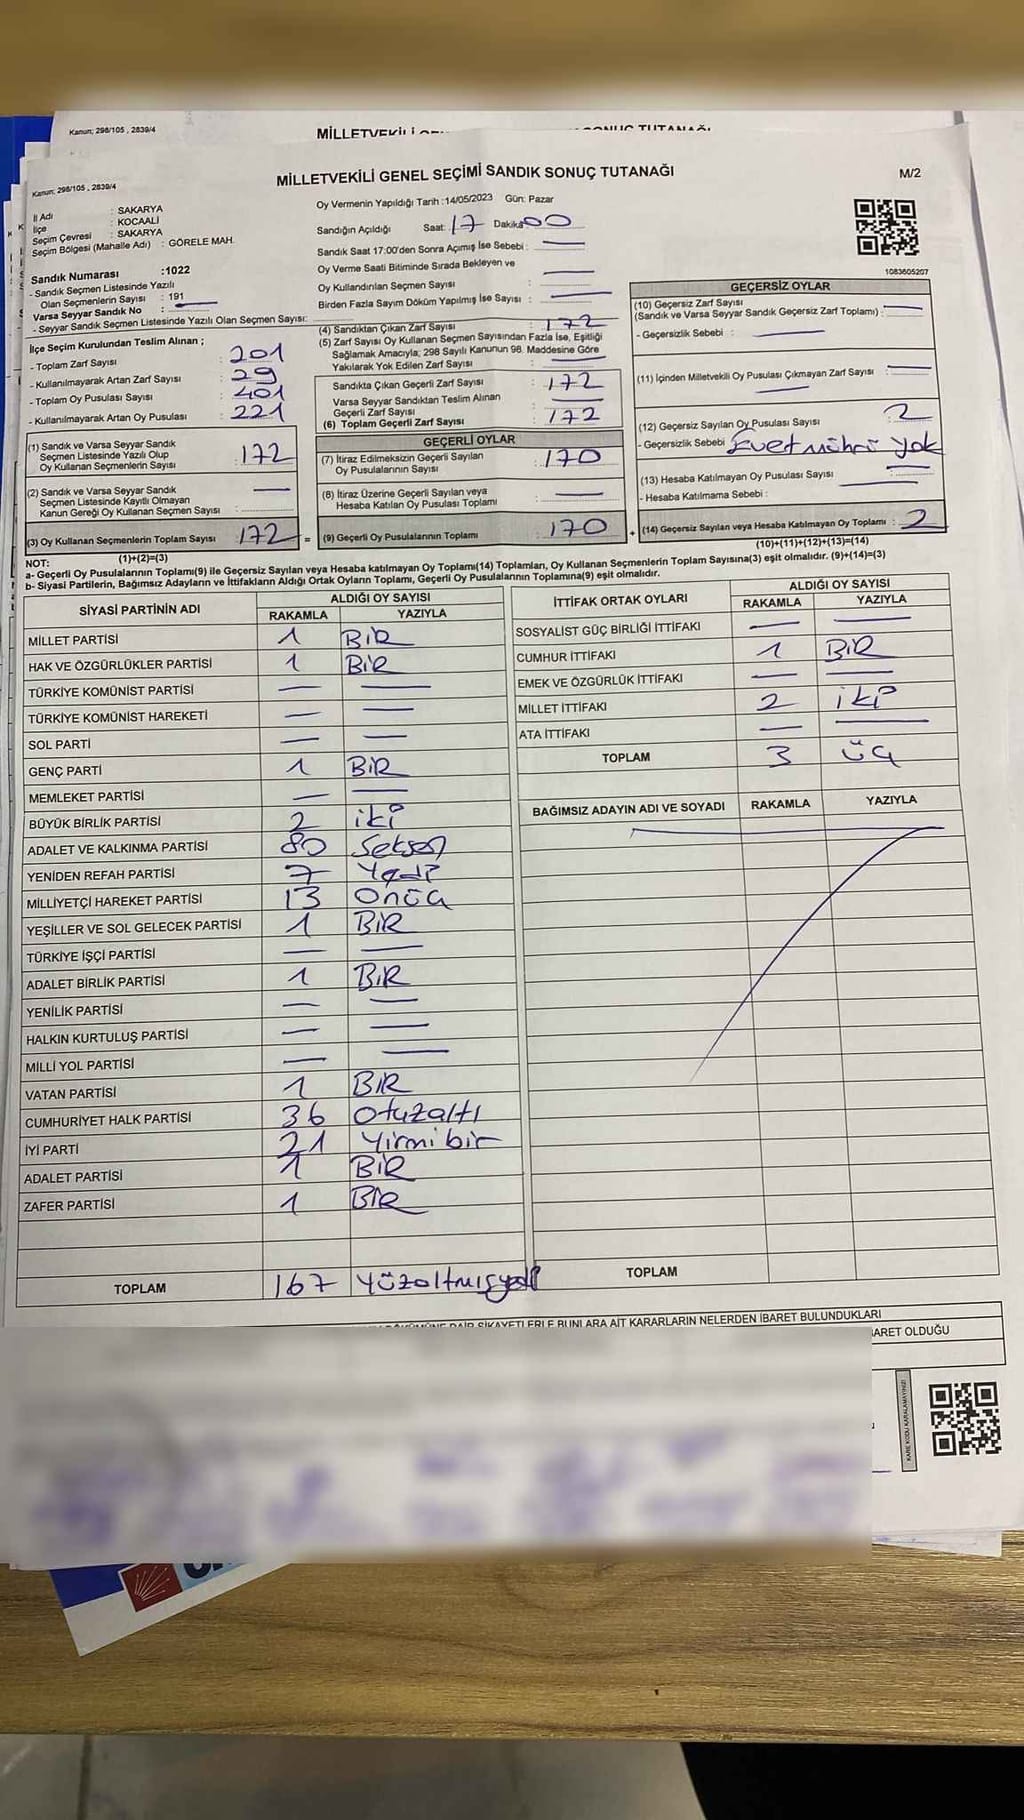 Kanun; 298/105 , 2839/4
Kanun; 298/105 , 2839/4
MİLLETVEKİLİ GENEL SEÇİMİ SANDIK SONUÇ TUTANAĞI
M/2
İl Adı : SAKARYA
İlçe : KOCAALİ
Seçim Çevresi : SAKARYA
Seçim Bölgesi (Mahalle Adı) : GÖRELE MAH.
Sandık Numarası :1022
- Sandık Seçmen Listesinde Yazılı
Olan Seçmenlerin Sayısı : 191
Varsa Seyyar Sandık No : —
- Seyyar Sandık Seçmen Listesinde Yazılı Olan Seçmen Sayısı:
Oy Vermenin Yapıldığı Tarih :14/05/2023 Gün: Pazar
Sandığın Açıldığı Saat: 17 Dakika: 00
Sandık Saat 17:00'den Sonra Açımış İse Sebebi : —
Oy Verme Saati Bitiminde Sırada Bekleyen ve
Oy Kullandırılan Seçmen Sayısı : —
Birden Fazla Sayım Döküm Yapılmış İse Sayısı : —
1083605207
İlçe Seçim Kurulundan Teslim Alınan ;
- Toplam Zarf Sayısı : 201
- Kullanılmayarak Artan Zarf Sayısı : 29
- Toplam Oy Pusulası Sayısı : 401
- Kullanılmayarak Artan Oy Pusulası : 221
(1) Sandık ve Varsa Seyyar Sandık
Seçmen Listesinde Yazılı Olup
Oy Kullanan Seçmenlerin Sayısı : 172
(2) Sandık ve Varsa Seyyar Sandık
Seçmen Listesinde Kayıtlı Olmayan
Kanun Gereği Oy Kullanan Seçmen Sayısı : —
(3) Oy Kullanan Seçmenlerin Toplam Sayısı : 172 =
(1)+(2)=(3)
(4) Sandıktan Çıkan Zarf Sayısı : 172
(5) Zarf Sayısı Oy Kullanan Seçmen Sayısından Fazla İse, Eşitliği
Sağlamak Amacıyla; 298 Sayılı Kanunun 98. Maddesine Göre
Yakılarak Yok Edilen Zarf Sayısı : —
Sandıkta Çıkan Geçerli Zarf Sayısı : 172
Varsa Seyyar Sandıktan Teslim Alınan
Geçerli Zarf Sayısı : —
(6) Toplam Geçerli Zarf Sayısı : 172
GEÇERLİ OYLAR
(7) İtiraz Edilmeksizin Geçerli Sayılan
Oy Pusulalarının Sayısı : 170
(8) İtiraz Üzerine Geçerli Sayılan veya
Hesaba Katılan Oy Pusulası Toplamı : —
(9) Geçerli Oy Pusulalarının Toplamı : 170 +
GEÇERSİZ OYLAR
(10) Geçersiz Zarf Sayısı
(Sandık ve Varsa Seyyar Sandık Geçersiz Zarf Toplamı) : —
- Geçersizlik Sebebi : —
(11) İçinden Milletvekili Oy Pusulası Çıkmayan Zarf Sayısı : —
(12) Geçersiz Sayılan Oy Pusulası Sayısı : 2
- Geçersizlik Sebebi : Evet mührü yok
(13) Hesaba Katılmayan Oy Pusulası Sayısı : —
- Hesaba Katılmama Sebebi : —
(14) Geçersiz Sayılan veya Hesaba Katılmayan Oy Toplamı : 2
(10)+(11)+(12)+(13)=(14)
NOT:
a- Geçerli Oy Pusulalarının Toplamı(9) ile Geçersiz Sayılan veya Hesaba katılmayan Oy Toplamı(14) Toplamları, Oy Kullanan Seçmenlerin Toplam Sayısına(3) eşit olmalıdır. (9)+(14)=(3)
b- Siyasi Partilerin, Bağımsız Adayların ve İttifakların Aldığı Ortak Oyların Toplamı, Geçerli Oy Pusulalarının Toplamına(9) eşit olmalıdır.
SİYASİ PARTİNİN ADI ALDIĞI OY SAYISI
RAKAMLA YAZIYLA
MİLLET PARTİSİ 1 BİR
HAK VE ÖZGÜRLÜKLER PARTİSİ 1 BİR
TÜRKİYE KOMÜNİST PARTİSİ — —
TÜRKİYE KOMÜNİST HAREKETİ — —
SOL PARTİ — —
GENÇ PARTİ 1 BİR
MEMLEKET PARTİSİ — —
BÜYÜK BİRLİK PARTİSİ 2 iki
ADALET VE KALKINMA PARTİSİ 80 Seksen
YENİDEN REFAH PARTİSİ 7 Yedi
MİLLİYETÇİ HAREKET PARTİSİ 13 Onüç
YEŞİLLER VE SOL GELECEK PARTİSİ 1 BİR
TÜRKİYE İŞÇİ PARTİSİ — —
ADALET BİRLİK PARTİSİ 1 BİR
YENİLİK PARTİSİ — —
HALKIN KURTULUŞ PARTİSİ — —
MİLLİ YOL PARTİSİ — —
VATAN PARTİSİ 1 BİR
CUMHURİYET HALK PARTİSİ 36 Otuzaltı
İYİ PARTİ 21 Yirmi bir
ADALET PARTİSİ 1 BİR
ZAFER PARTİSİ 1 BİR
TOPLAM 167 Yüzaltmışyedi
İTTİFAK ORTAK OYLARI ALDIĞI OY SAYISI
RAKAMLA YAZIYLA
SOSYALİST GÜÇ BİRLİĞİ İTTİFAKI — —
CUMHUR İTTİFAKI 1 BİR
EMEK VE ÖZGÜRLÜK İTTİFAKI — —
MİLLET İTTİFAKI 2 iki
ATA İTTİFAKI — —
TOPLAM 3 üç
BAĞIMSIZ ADAYIN ADI VE SOYADI RAKAMLA YAZIYLA
TOPLAM
ŞİKAYETLERLE BUNLARA AİT KARARLARIN NELERDEN İBARET BULUNDUKLARI
OLDUĞU